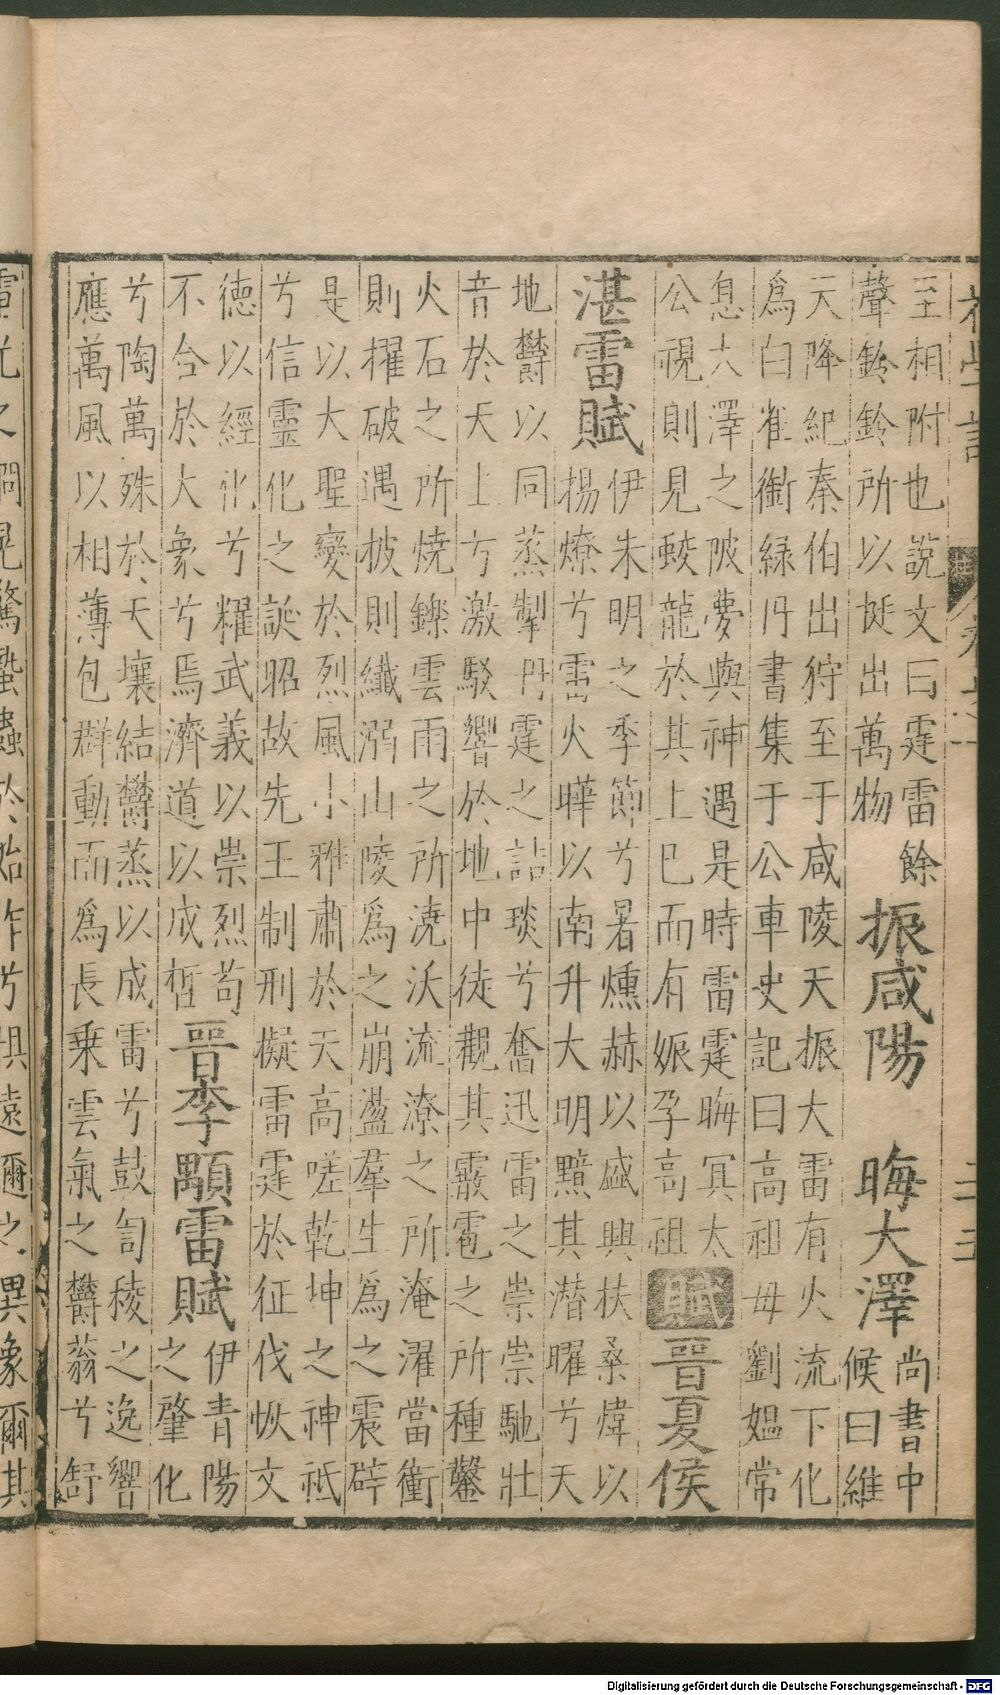 至相附也說文曰霆雷餘
聲鈴鈴所以挺出萬物
振咸陽
晦大澤
尚書中
候曰維
天降紀秦伯出狩至于咸陵天振大雷有火流下化
爲白雀銜綠丹書集于公車史記曰高祖母劉媼常
息大澤之陂夢與神遇是時雷霆晦冥太
公視則見蛟龍於其上巳而有娠孕高祖
賦
晉夏侯
湛雷賦
伊朱明之季節兮暑燻赫以盛興扶桑煒以
揚燎兮雷火曄以南升大明黯其潛曜兮天
地欝以同蒸掣丹霆之誥琰兮奮迅雷之崇崇馳壯
音於天上兮激駮響於地中徒觀其霰雹之所種鑿
火石之所燒鑠雲雨之所澆沃流潦之所淹濯當衝
則擢破遇披則纖溺山陵爲之崩盪羣生爲之震辟
是以大聖變於烈風小雅肅於天高嗟乾坤之神祇
兮信靈化之誕昭故先王制刑擬雷霆於征伐恢文
德以經化兮糴武義以崇烈苟
不合於大象兮焉濟道以成哲
晉李顒雷賦
伊青陽
之肇化
兮陶萬殊於天壤結欝蒸以成雷兮鼓訇稜之逸響
應萬風以相薄包群動而爲長乗雲氣之欝蓊兮舒
電光之炯晃驚蟄蟲於始作兮惧遠邇之異象爾其
初學記
卷之一
二十五
Digitalisierung gefördert durch die Deutsche Forschungsgemeinschaft - DFG